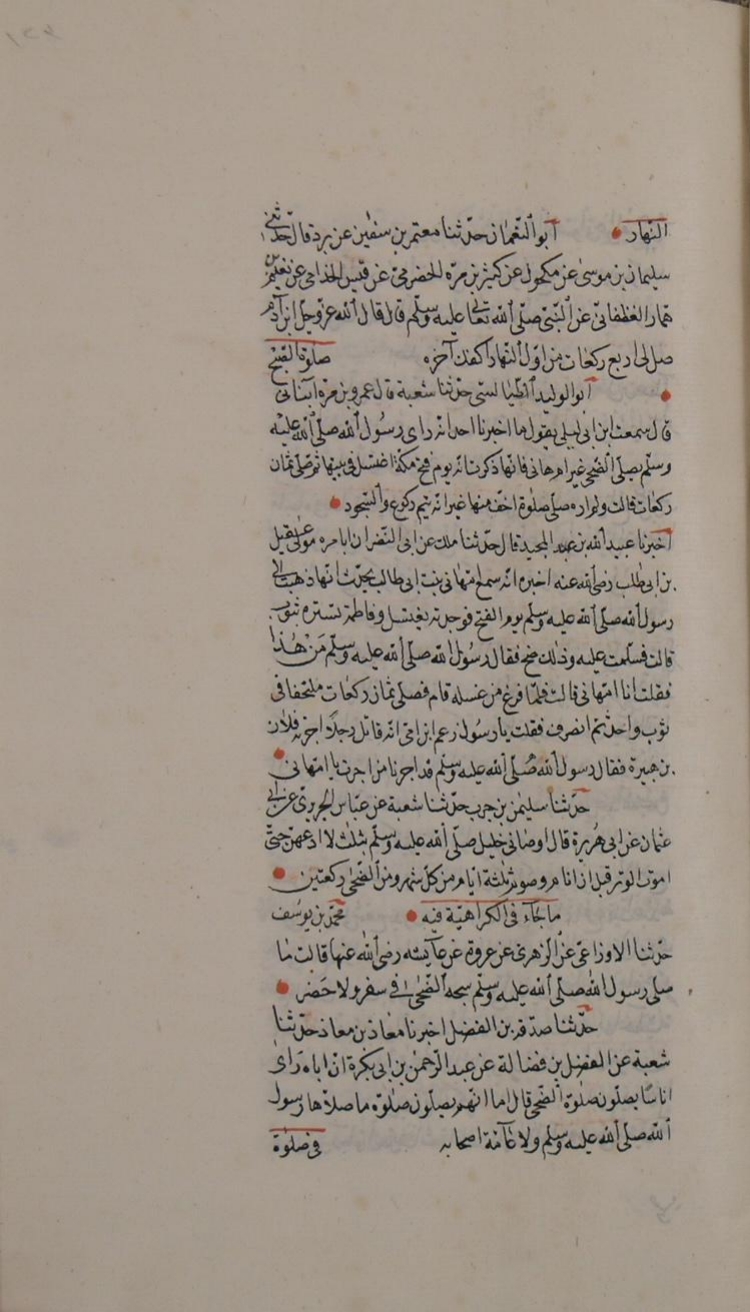 النهار ابو النعمان حدثنا معتمر بن سفين عن برد قال حدثني
سليمان بن موسى عن مكحول عن كثير بن مرة الحضرمي عن قيس الجذامي عن نعيم بن
همار الغطفاني عن النبي صلى الله تعالى عليه وسلم قال قال الله عز وجل ابن آدم
صل لي اربع ركعات من اول النهار اكفك آخره صلوة الضحى
ابو الوليد الطيالسي حدثنا شعبة قال عمرو بن مرة انبأني
قال سمعت ابن ابي ليلى يقول ما اخبرنا احد انه راى رسول الله صلى الله عليه
وسلم يصلي الضحى غير ام هاني فانها ذكرت انه يوم فتح مكة اغتسل في بيتها ثم صلى ثمان
ركعات قالت ولم اره صلى صلوة اخف منها غير انه يتم ركوع والسجود
اخبرنا عبيد الله بن عبد المجيد قال حدثنا ملك عن ابي النضر ان ابا مره مولى عقيل
بن ابي طلب رضي الله عنه اخبره انه سمع ام هاني بنت ابي طالب يحدث انها ذهبت الى
رسول الله صلى الله عليه وسلم يوم الفتح فوجدته يغتسل وفاطمة تستره بثوب
قالت فسلمت عليه وذلك ضحى فقال رسول الله صلى الله عليه وسلم من هذا
فقلت انا ام هاني قالت فلما فرغ من غسله قام فصلى ثمان ركعات ملتحفا في
ثوب واحد ثم انصرف فقلت يا رسول زعم ابن امي انه قاتل رجلا اجرته فلان
بن هبيرة فقال رسول الله صلى الله عليه وسلم قد اجرنا من اجرت يا ام هاني
حدثنا سليمن بن حرب حدثنا شعبة عن عباس الجريري عن ابي
عثمان عن ابي هريرة قال اوصاني خليل صلى الله عليه وسلم بثلث لا ادعهن حتى
اموت الوتر قبل ان انام وصوم ثلثة ايام من كل شهر ومن الضحى ركعتين
ما جاء في الكراهية فيه محمد بن يوسف
حدثنا الاوزاعي عن الزهري عن عروة عن عايشه رضي الله عنها قالت ما
صلى رسول الله صلى الله عليه وسلم سبحه الضحى في سفر ولا حضر
حدثنا صدقة بن الفضل اخبرنا معاذ بن معاذ حدثنا
شعبة عن الفضل بن فضالة عن عبد الرحمن بن ابي بكرة ان اباه راى
اناسا يصلون صلوة الضحى قال اما انهم يصلون صلوة ما صلاها رسول
الله صلى الله عليه وسلم ولا عامة اصحابه في صلوة